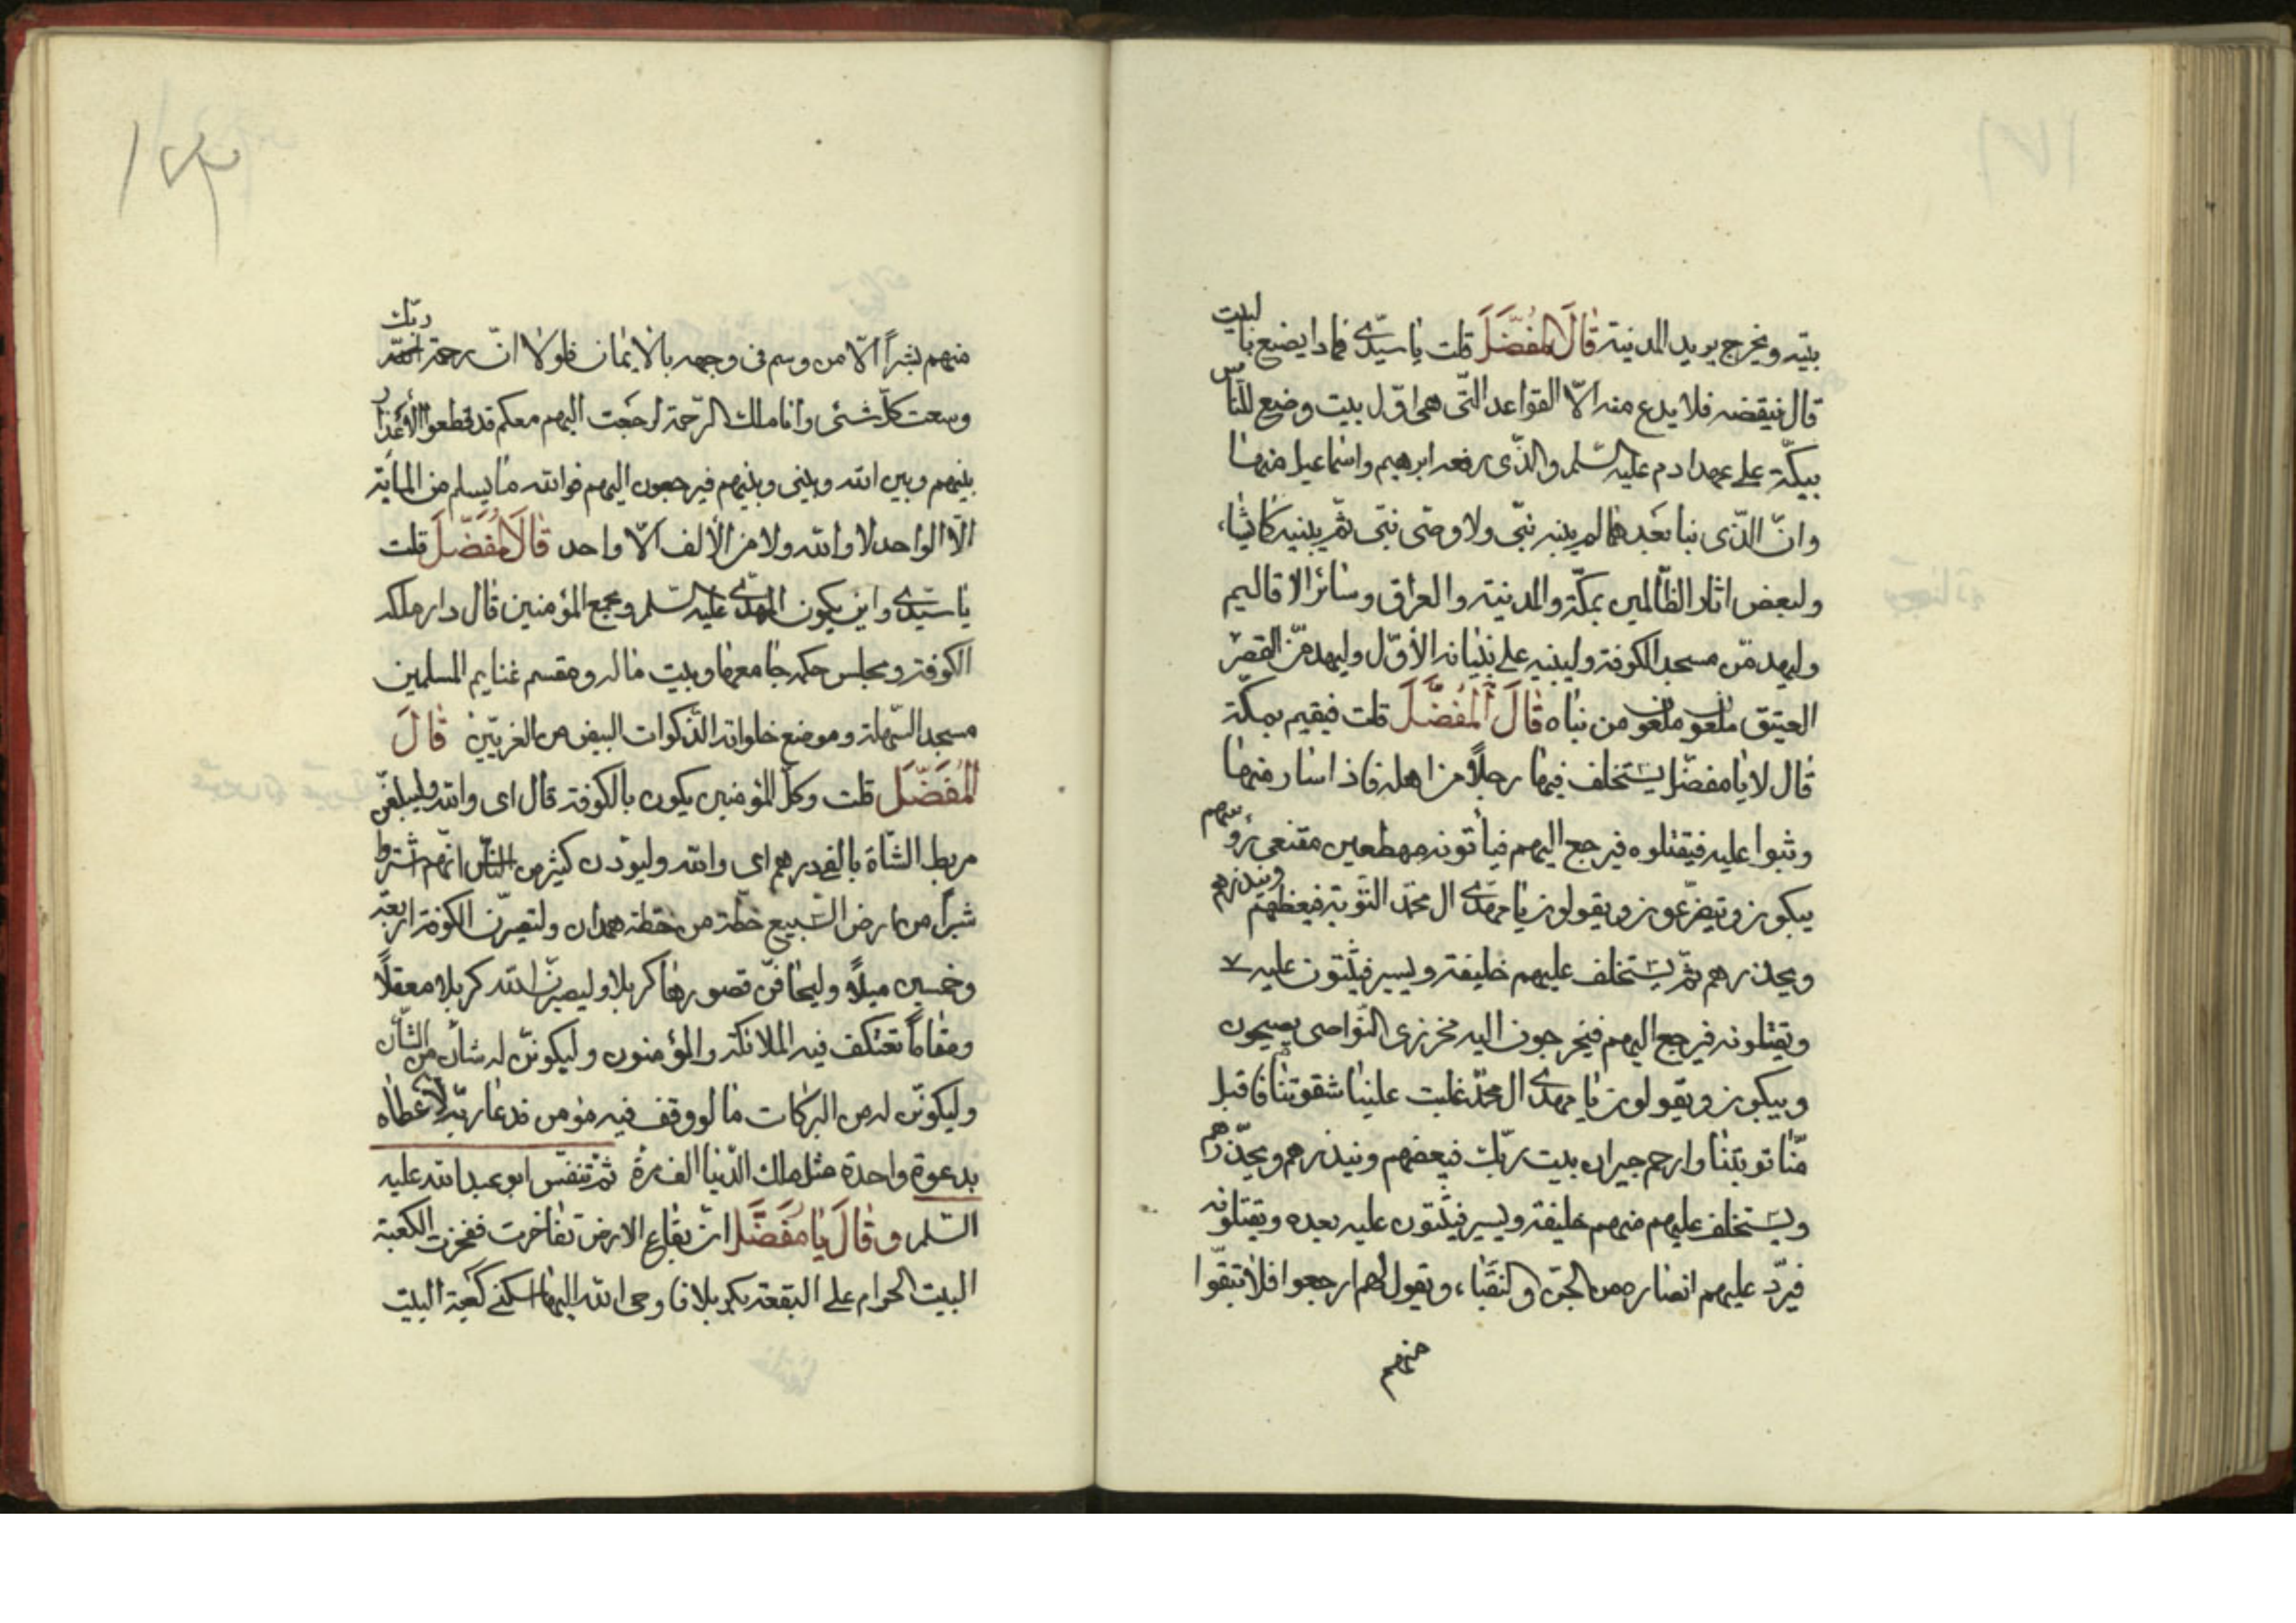 بيته ويخرج يريد المدينة قَالَ المُفَضَّلَ قلت يا سيّدى فما ذا يصنع بالبيت
قال ينقضه فلا يدع منه الّا القواعد التّى هى اوّل بيت وضع للنّاس
ببكّة على عهد ادم عليه السّلم والذّى رفعه ابرهيم واسماعيل منها
وانّ الذّى بنا بعدهما لم يبنه نبّى ولا وصّى نبّى ثمّ يبنيه كما يشاء
وليعض اثار الظّالمين بمكّة والمدينة والعراق وسائر الاقاليم
وليهدمّن مسجد الكوفة وليبنيه على بنيانه الأوّل وليهدمّن القصر
العتيق ملعون ملعون من بناه قَالَ المُفَضَّلَ قلت فيقيم بمكة
قال لا يا مفضّل يستخلف فيها رجلاً من اهله فاذا سار منها
وثبوا عليه فيقتلوه فيرجع اليهم فيأتونه مهطعين مقنعى رؤسهم
يبكون ويتضرّعون ويقولون يا مهدّى ال محمّد التّوبة فيعظهم وينذرهم
ويحذرهم ثمّ يستخلف عليهم خليفة ويسير فيثبون عليه
ويقتلونه فيرجع اليهم فيخرجون اليه مخرزى النّواصى يصيحون
ويبكون ويقولون يا مهدى ال محمّد غلبت علينا شقوتنا فاقبل
منّا توبتنا وارحم جيران بيت ربّك فيعضهم وينذرهم ويحذّرهم
ويستخلف عليهم منهم خليفة ويسير فيثبون عليه بعده ويقتلونه
فيردّ عليهم انصاره من الجنّ والنقباء ويقول لهم ارجعوا فلا تبقّوا
منهم
١٧٣
منهم بشراً الّا من وسم فى وجهه بالايمان فلولا انّ رحمة ربّك
وسعت كلّ شئى وانا ملك الرّحمة لرجعت اليهم معكم قد قطعوا الأعذار
بينهم وبين الله وبينى وبينهم فيرجعون اليهم فوالله ما يسلم من الماية
الّا الواحد لا والله ولا من الألف الّا واحد قَالَ المُفَضَّلَ قلت
يا سيّدى واين يكون المهدّى عليه السّلم ومجمع المؤمنين قال دار ملكه
الكوفة ومجلس حكمه جامعها وبيت ماله ومقسم غنايم المسلمين
مسجد السّهلة وموضع خلواته الذّكوات البيض من الغريّين قَالَ
المُفَضَّلَ قلت وكلّ المؤمنين يكون بالكوفة قال اى والله وليبلغنّ
مربط الشّاة بالفدرهم اى والله وليودن كثير من النّاس انّهم اشتروا
شبراً من ارض السّبيع خطّة من خطة همدان ولتصيرّن الكوفة اربعة
وخمسين ميلاً وليحافنّ قصورها كربلا وليصيرّن الله كربلا معقلاً
ومقاماً تعتكف فيه الملائكة والمؤمنون وليكوننّ له شأن من الشّأن
وليكوننّ له من البركات ما لو وقف فيه مؤمن فدعا ربّه لأعطاه
بدعوة واحدة مثل ملك الدّنيا الف مرّة ثمّ تنفّس ابو عبد الله عليه
السّلم وقَالَ يَا مُفَضَّل انّ بقاع الارض تفاخرت ففخرت الكعبة
البيت الحرام على البقعة بكربلا فاوحى الله اليها اسكنى كعبة البيت